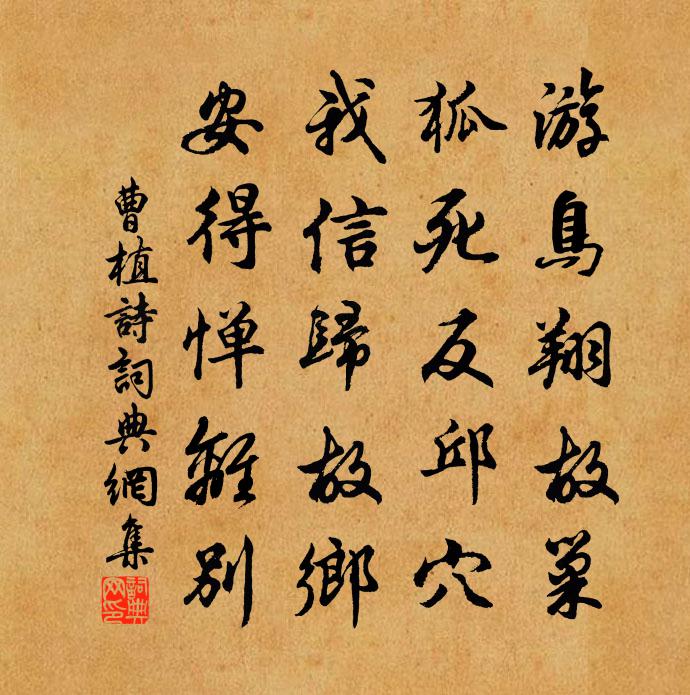 游鳥翔故巢
狐死反邱穴
我信歸故鄉
安得惮離別
曹植詩詞典網集
詞典網印